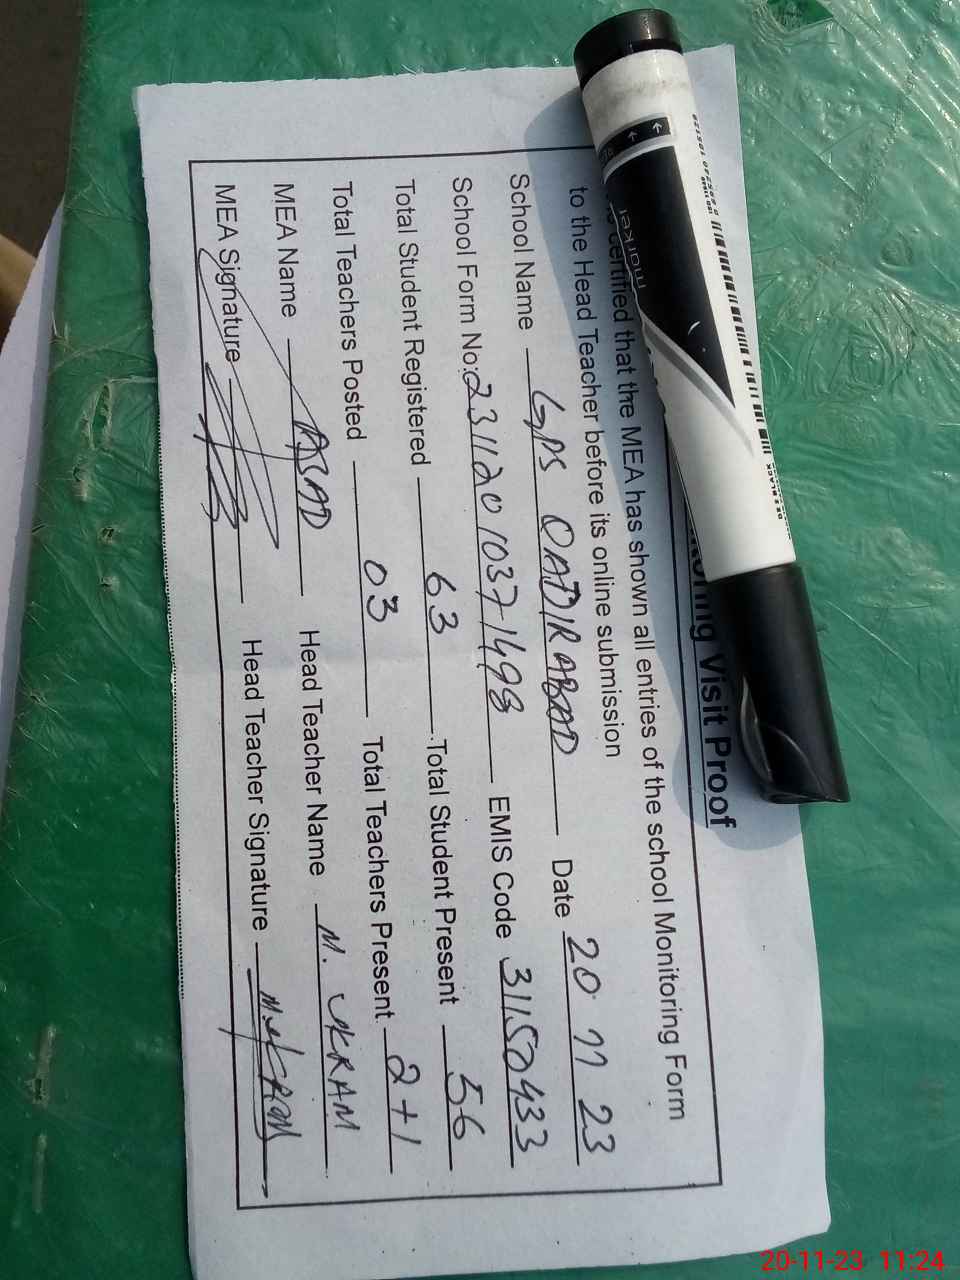 ring Visit Proof
certified that the MEA has shown all entries of the school Monitoring Form
to the Head Teacher before its online submission
School Name GPS QADIRABAD Date 20 11 23
School Form No: 231120 1037 1498 EMIS Code 31150433
Total Student Registered 63 Total Student Present 56
Total Teachers Posted 03 Total Teachers Present 2+1
MEA Name ASAD Head Teacher Name M. IKRAM
MEA Signature Head Teacher Signature M. IKRAM
marker
20-11-23 11:24